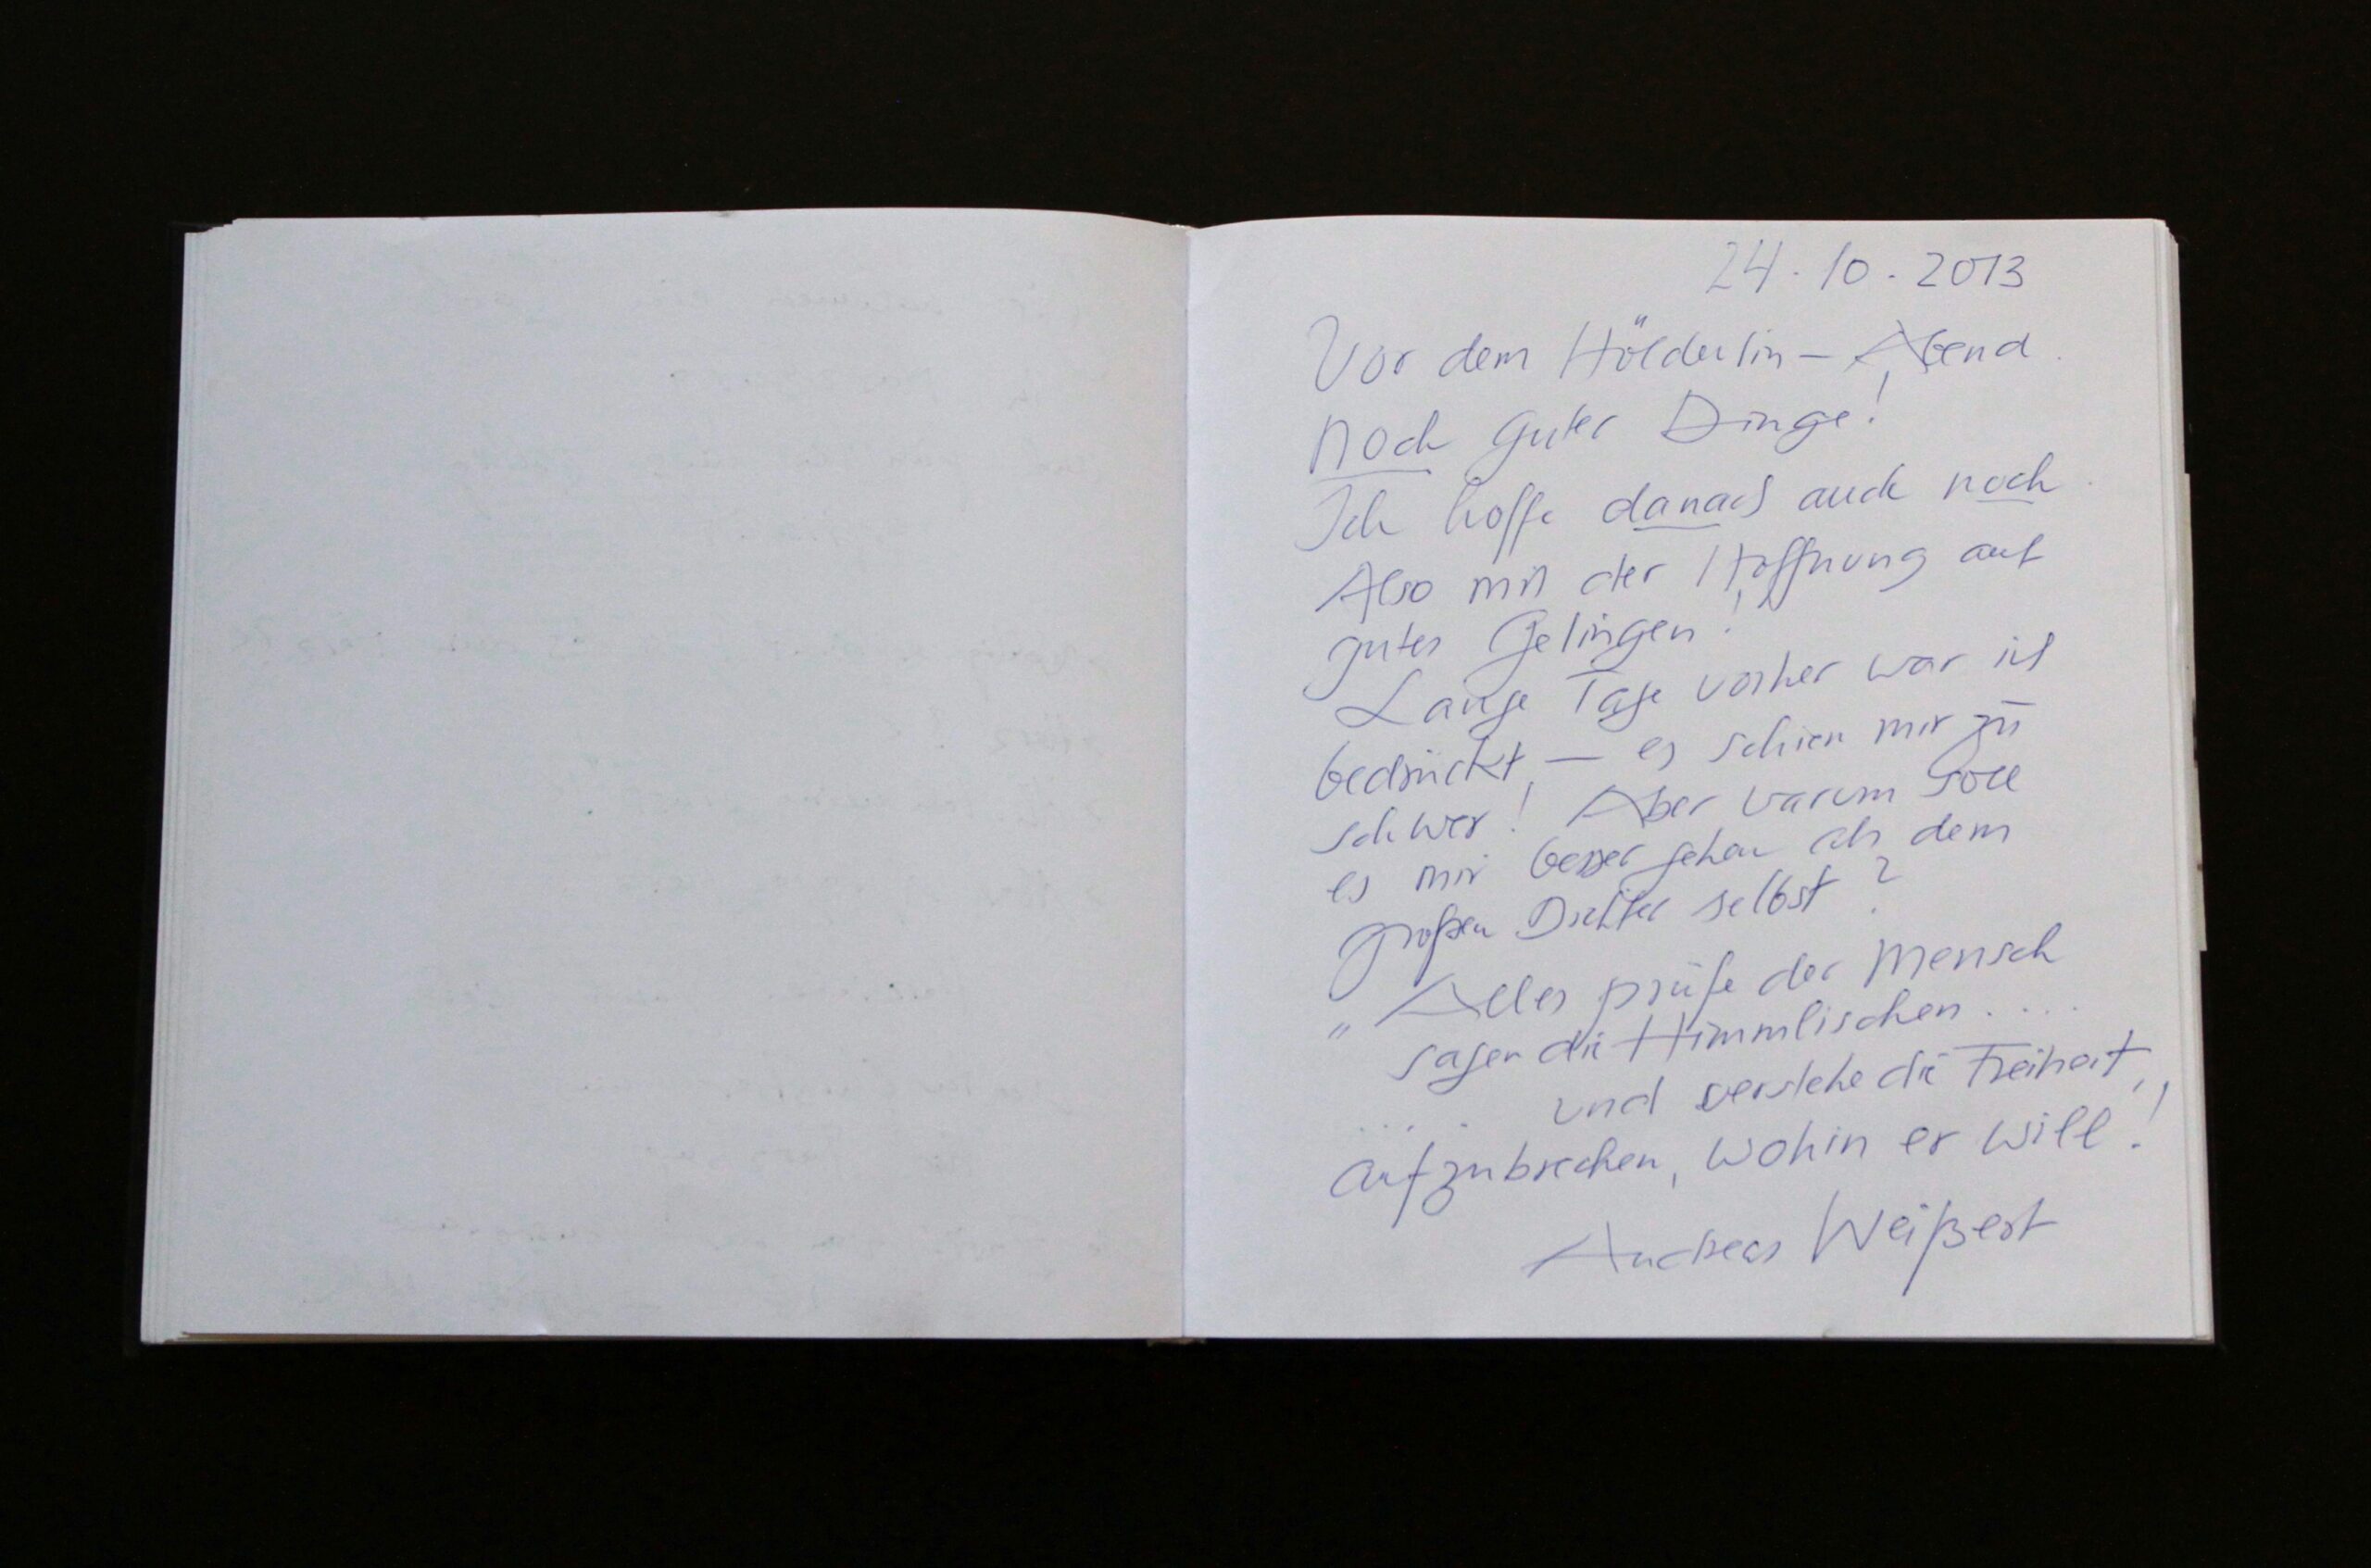 24.10.2013
Vor dem Hölderlin – Abend
noch guter Dinge!
Ich hoffe danach auch noch.
Also mit der Hoffnung auf
gutes Gelingen!
Lange Tage vorher war ich
bedrückt, — es schien mir zu
schwer! Aber warum soll
es mir besser gehen als dem
großen Dichter selbst?
„Alles prüfe der Mensch
sagen die Himmlischen....
.... und verstehe die Freiheit,
aufzubrechen, wohin er will"!
Andreas Weißert